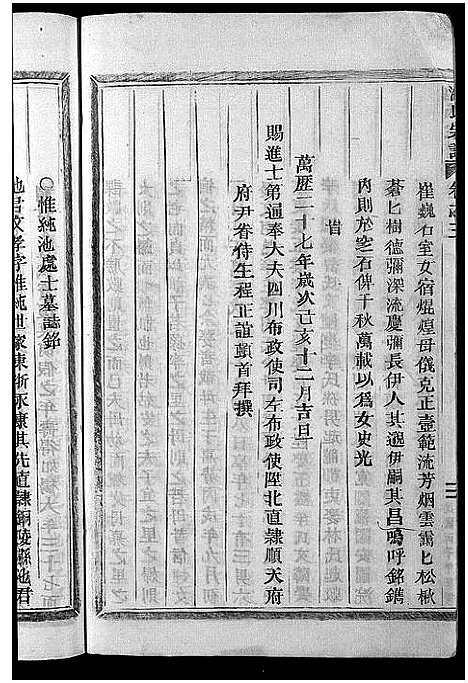 氏宗譜 卷之三
崔巍石室女宿焜煌母儀克正壼範流芳烟雲靄匕松楸
蒼匕樹德彌深流慶彌長伊人其遐伊嗣其昌嗚呼銘鐫
內則於窆石俾千秋萬載以爲女史光
旹
萬歷二十七年歲次己亥十二月吉旦
賜進士第通奉大夫四川布政使司左布政使陞北直隸順天府
府尹眷侍生程正誼頓首拜撰
〇惟純池處士墓誌銘
池君文孝字惟純世家東浙永康其先直隸銅陵縣池君